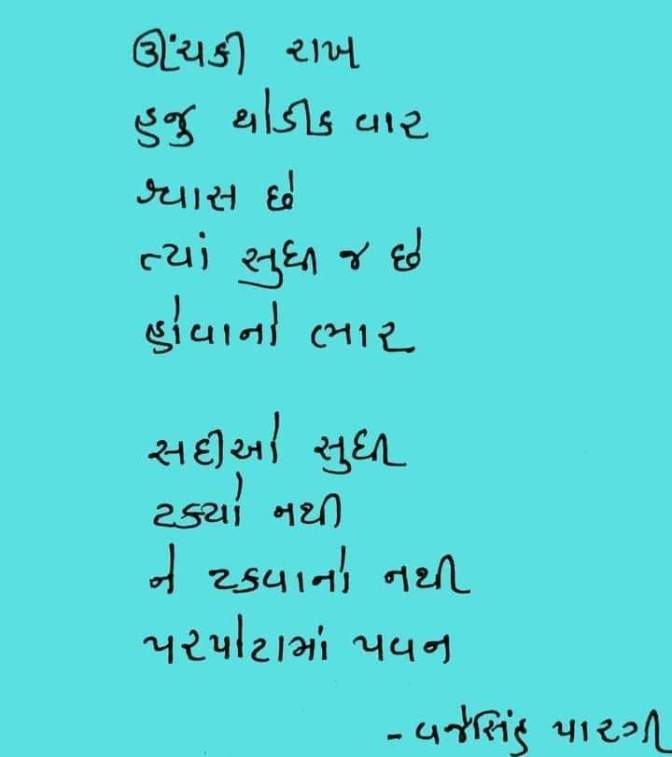 ઊંચકી રાખ
હજુ થોડીક વાર
શ્વાસ છે
ત્યાં સુધી જ છે
હોવાનો ભાર
સદીઓ સુધી
ટક્યો નથી
ને ટકવાનો નથી
પરપોટામાં પવન
- વજેસિંહ પારગી